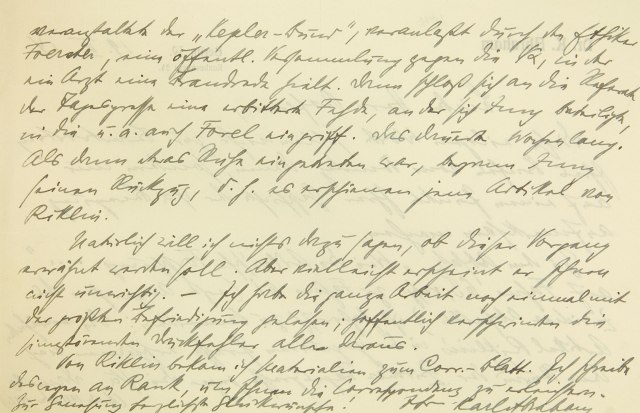 veranstaltete der „Kepler-Bund", veranlaßt durch den Ethiker
Foerster, eine öffentl. Versammlung gegen die ΨA, in der
ein Arzt eine Brandrede hielt. Dann schloß sich an die Referate
der Tagespresse eine erbitterte Fehde, an der sich Jung beteiligte,
in die u. a. auch Forel eingriff. Das dauerte Wochenlang.
Als dann etwas Ruhe eingetreten war, begann Jung
seinen Rückzug, d. h. es erschienen jene Artikel von
Riklin.
Natürlich will ich nichts dazu sagen, ob dieser Vorgang
erwähnt werden soll. Aber vielleicht erscheint er Ihnen
nicht unwichtig. — Ich habe die ganze Arbeit noch einmal mit
der größten Befriedigung gelesen; hoffentlich verschwinden die
sinnstörenden Druckfehler alle daraus.
Von Riklin bekam ich Materialien zum Corr.-blatt. Ich schreibe
deswegen an Rank, um Ihnen die Correspondenz zu erleichtern.
Zur Genesung herzlichste Glückwünsche! Ihr Karl Abraham